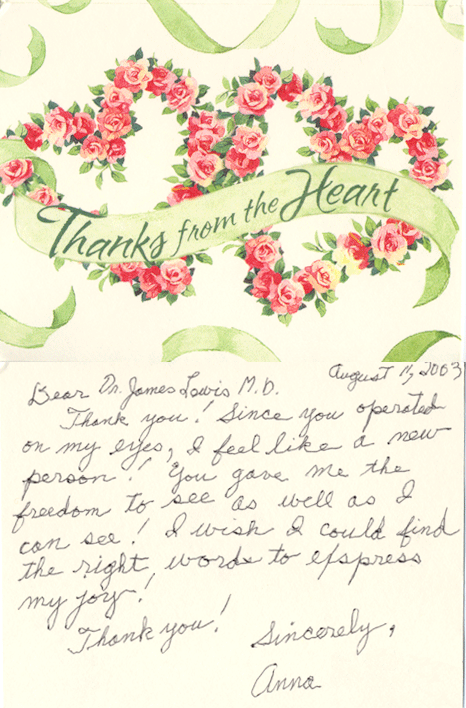 Thanks from the Heart
August 11, 2003
Dear Dr. James Lewis M.D.
Thank you! Since you operated
on my eyes, I feel like a new
person! You gave me the
freedom to see as well as I
can see! I wish I could find
the right words to efspress
my joy!
Thank you!
Sincerely,
Anna